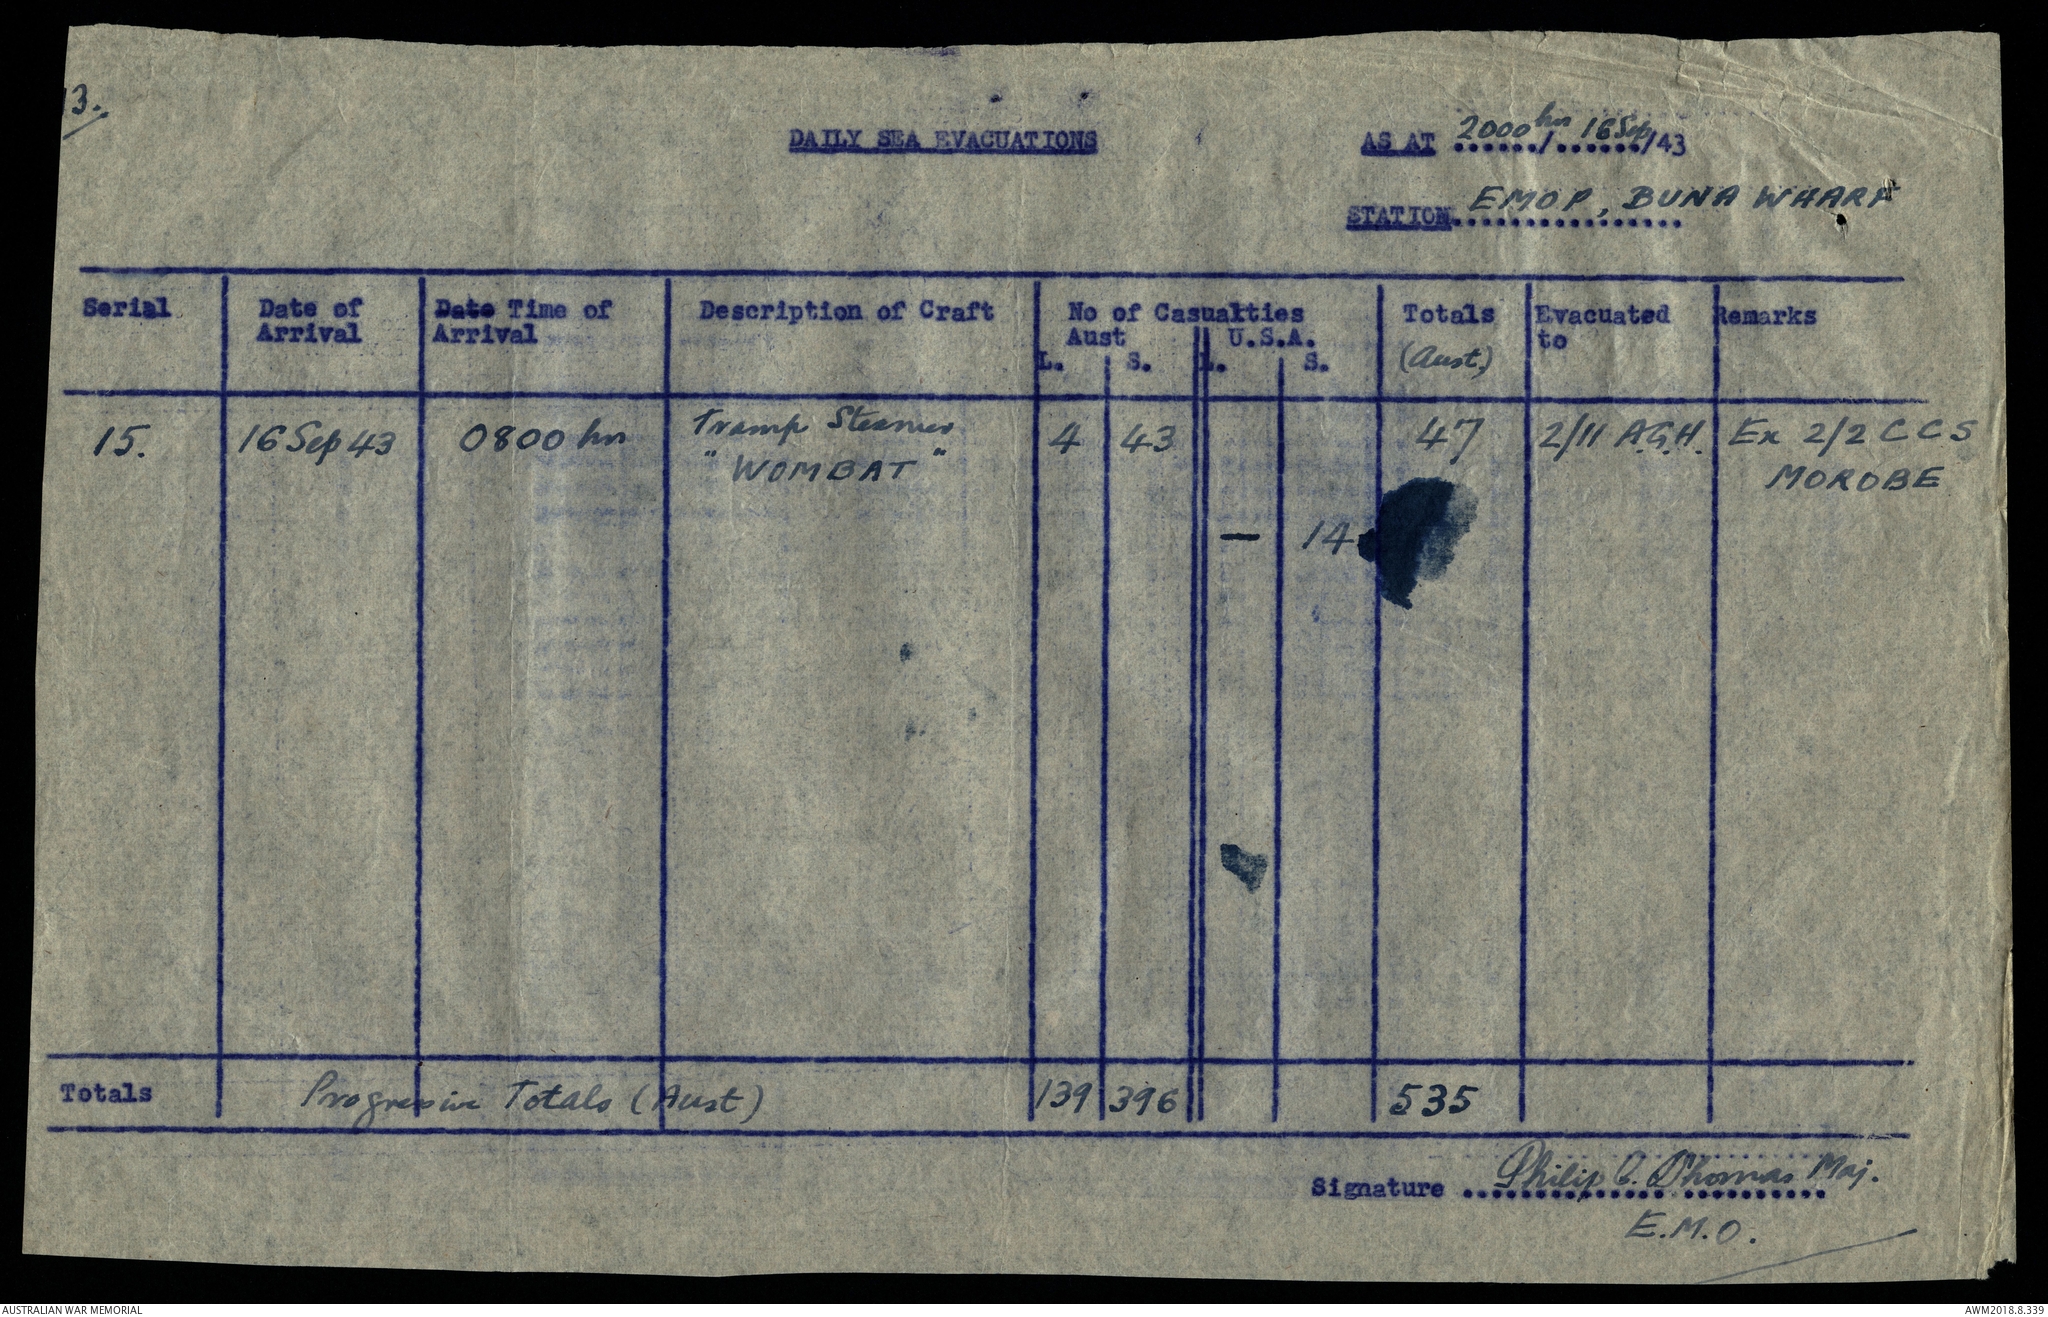 3.
DAILY SEA EVACUATIONS
AS AT 2000 hrs / 16 Sep/43
STATION EMOP, BUNA WHARF
Serial Date of Arrival Date Time of Arrival Description of Craft No of Casualties Aust L. S. U.S.A. L. S. Totals (Aust.) Evacuated to Remarks
15. 16 Sep 43 0800 hrs Tramp Steamer 4 43 47 2/11 A.G.H. Ex 2/2 CCS
"WOMBAT" MOROBE
— 14
Totals Progressive Totals (Aust) 139 396 535
Signature Philip C. Thomas Maj.
E.M.O.
AUSTRALIAN WAR MEMORIAL AWM2018.8.339